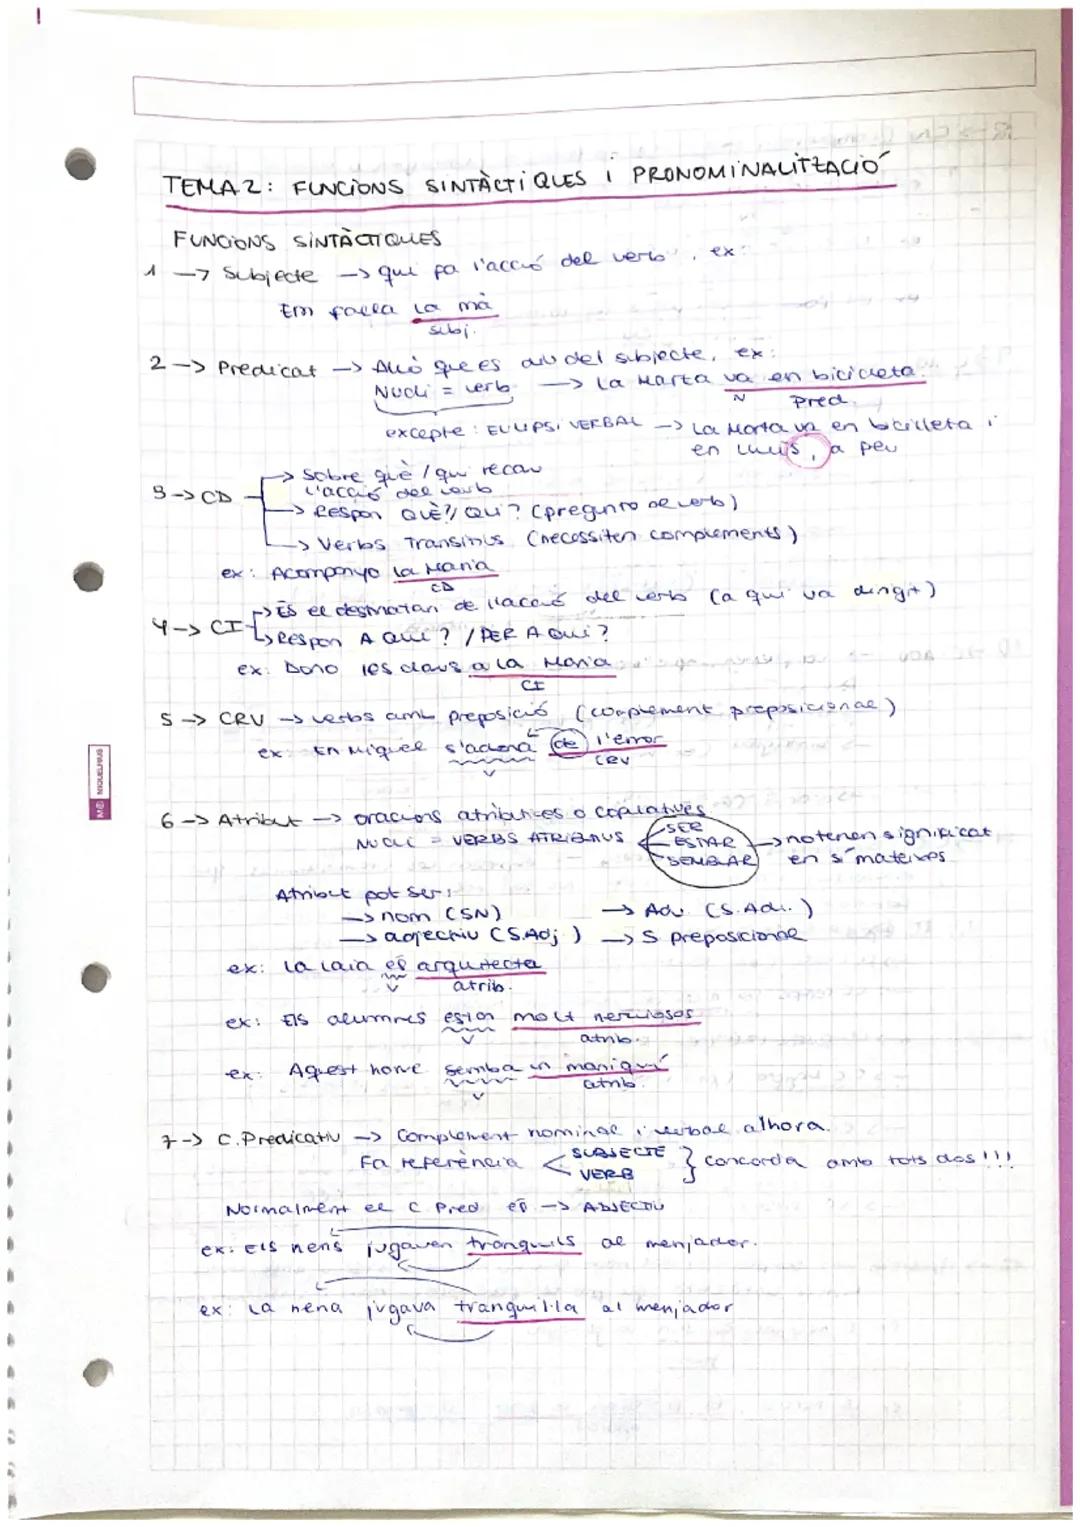 TEMA 2: FUNCIONS SINTÀCTIQUES i PRONOMINALITZACIÓ
FUNCIONS SINTÀCTIQUES
1 → Subjecte → qui fa l'acció del verb, ex:
Em falla la mà
subj.
2 → Predicat → Allò que es diu del subjecte, ex:
Nucli = verb → La Marta va en bicicleta.
N Pred.
excepte: EL·LIPSI VERBAL → La Marta va en bicicleta i
en Lluís, a peu
3 → CD → Sobre què / qui recau
l'acció del verb
→ Respon QUÈ? / QUI? (pregunto al verb)
→ Verbs Transitius (necessiten complements)
ex: Acompanyo la Maria
CD
4 → CI → És el destinatari de l'acció del verb (a qui va dirigit)
→ Respon A QUI? / PER A QUI?
ex: Dono les claus a la Maria
CI
5 → CRV → verbs amb preposició (complement preposicional)
ex: En Miquel s'adona de l'error
V CRV
6 → Atribut → oracions atributives o copulatives
NUCLI = VERBS ATRIBUTIUS SER
ESTAR → no tenen significat
SEMBLAR en sí mateixos
Atribut pot ser:
→ nom (SN) → Adv. (S.Adv.)
→ adjectiu (S.Adj) → S preposicional
ex: La Laia és arquitecta
V atrib.
ex: Els alumnes estan molt nerviosos
V atrib.
ex: Aquest home sembla un maniquí
V atrib.
7 → C.Predicatiu → Complement nominal i verbal alhora.
Fa referència SUBJECTE
VERB } concorda amb tots dos!!!
Normalment el C Pred és → ADJECTIU
ex: Els nens jugaven tranquils al menjador.
ex: La nena jugava tranquil·la al menjador
MIQUELRIUS